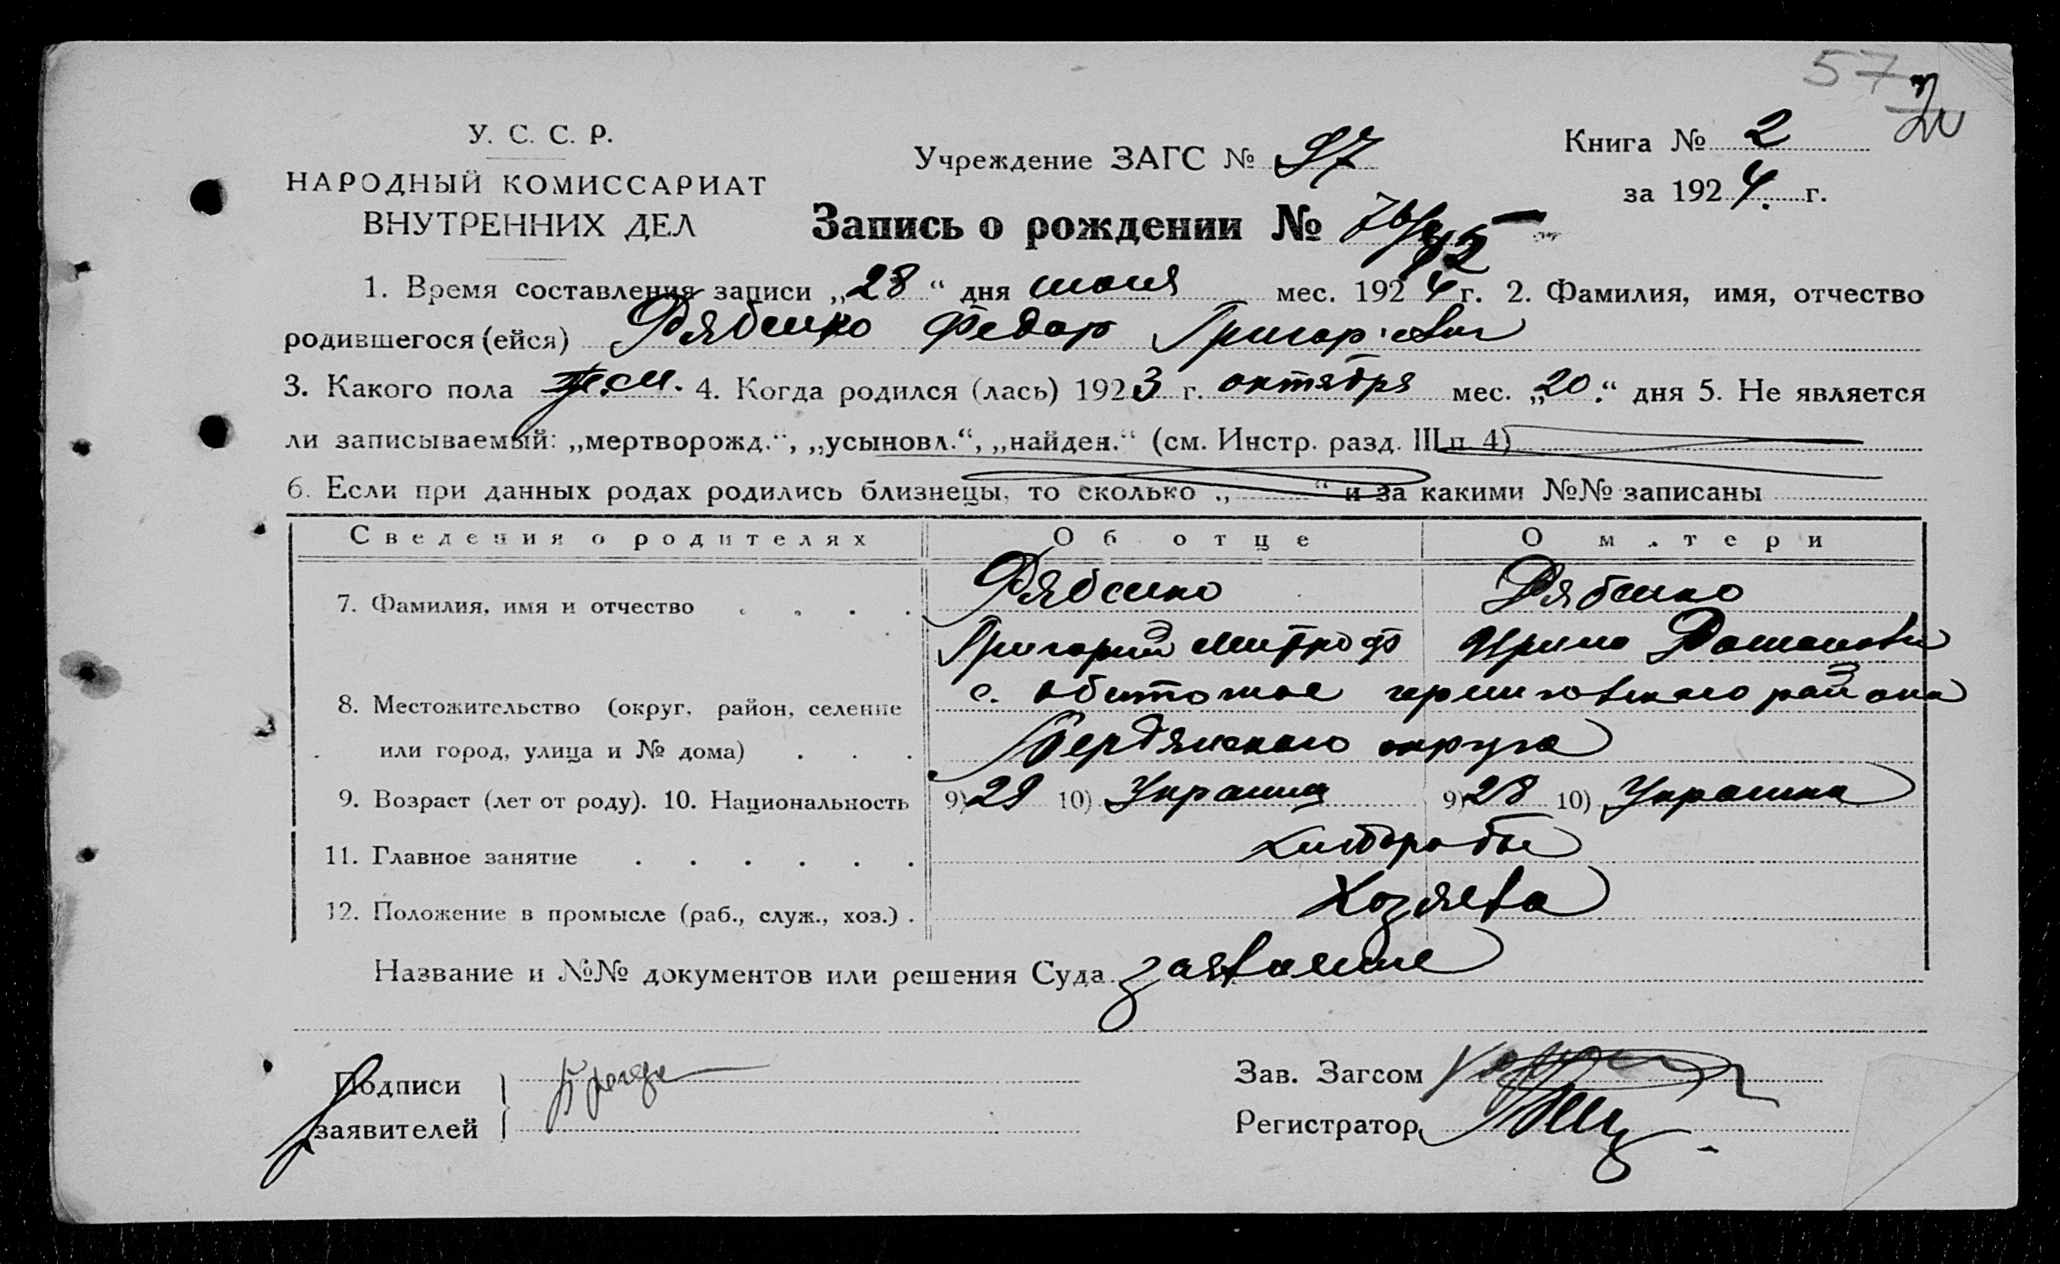 57
У. С. С. Р.
НАРОДНЫЙ КОМИССАРИАТ
ВНУТРЕННИХ ДЕЛ
Учреждение ЗАГС № 97
Книга № 2
за 1924. г.
Запись о рождении №
1. Время составления записи „28“ дня июня мес. 1924 г. 2. Фамилия, имя, отчество
родившегося (ейся) Рябченко Федор Григорьевич
3. Какого пола 4. Когда родился (лась) 1923 г. октября мес. „20.“ дня 5. Не является
ли записываемый: „мертворожд.“, „усыновл.“, „найден.“ (см. Инстр. разд. III п. 4)
6. Если при данных родах родились близнецы, то сколько „ “ и за какими №№ записаны
Сведения о родителях Об отце О матери
7. Фамилия, имя и отчество . . . . Рябченко Рябченко
Григорий Митроф Ирина
8. Местожительство (округ, район, селение с. Обиточное черниговского района
или город, улица и № дома) . . . Бердянского округа
9. Возраст (лет от роду). 10. Национальность 9) 29 10) Украинц 9) 28 10) Украинка
11. Главное занятие . . . . . . хлебороби
12. Положение в промысле (раб., служ., хоз.) . Хозяева
Название и №№ документов или решения Суда заявление
Подписи
заявителей
Зав. Загсом
Регистратор